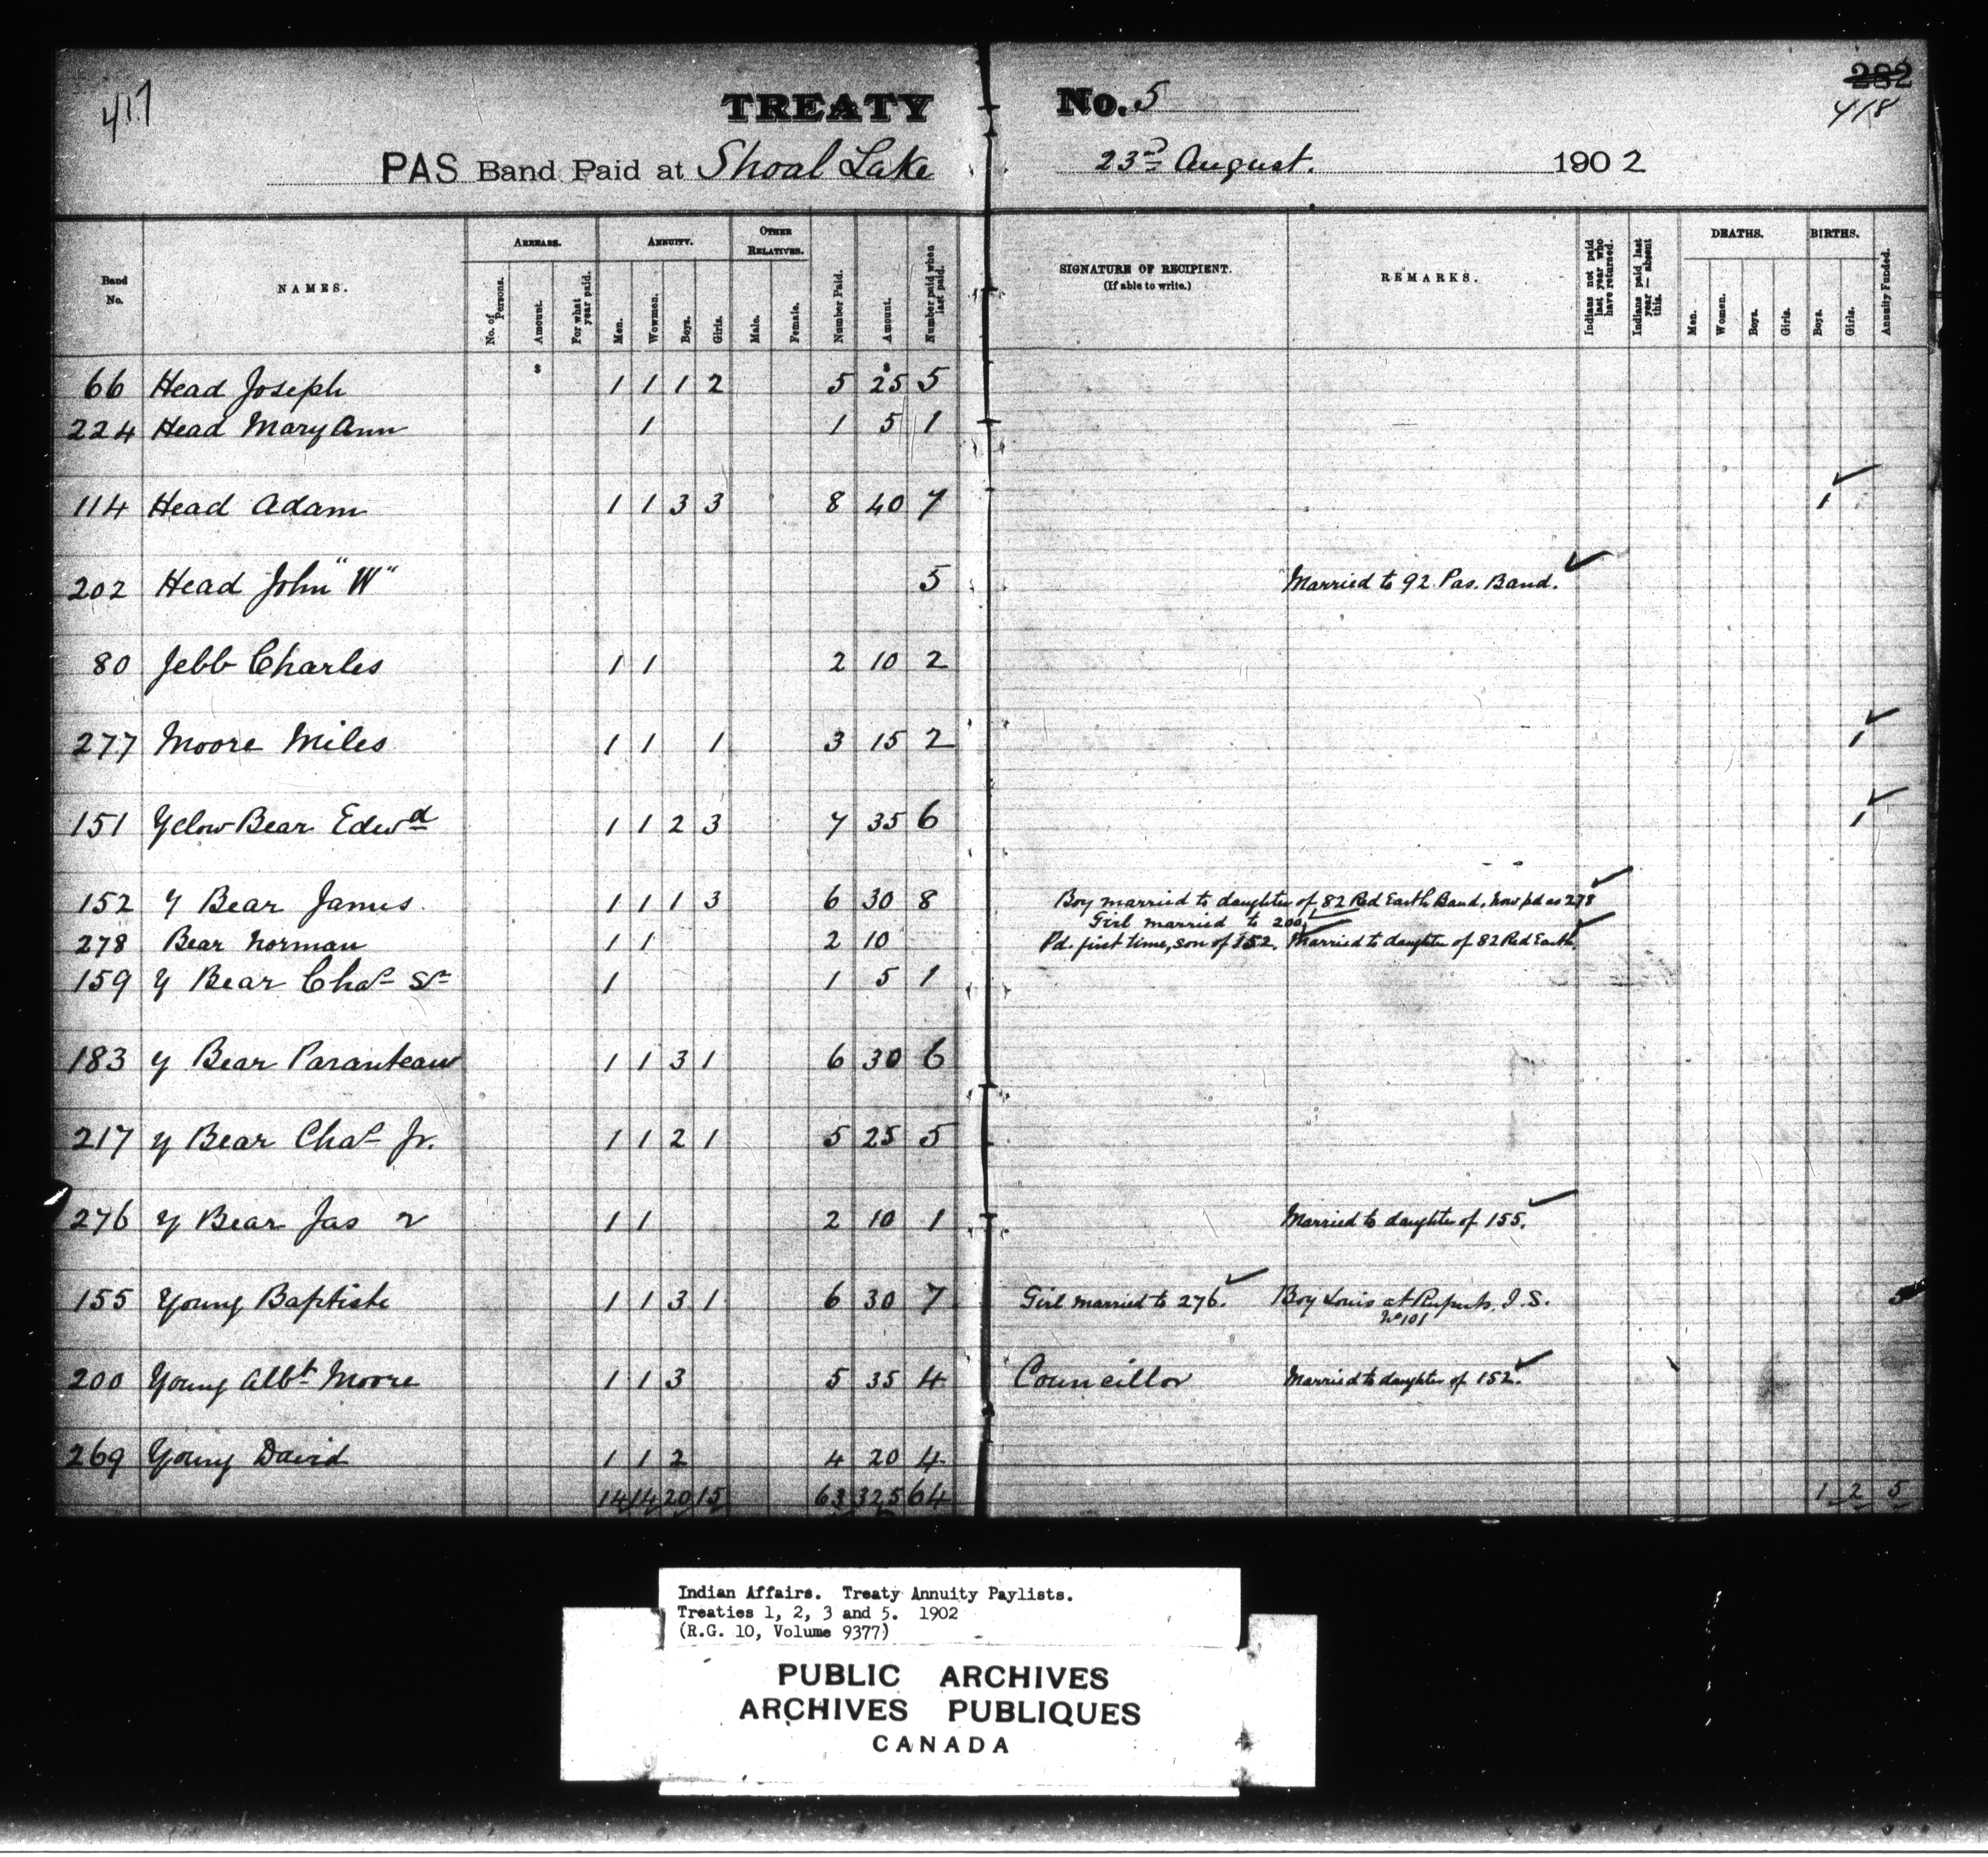 417
TREATY No. 5
282
418
PAS Band Paid at Shoal Lake 23rd August. 1902
Band No. NAMES. ARREARS. No. of Persons. Amount. For what year paid. ANNUITY. Men. Wowmen. Boys. Girls. OTHER RELATIVES. Male. Female. Number Paid. Amount. Number paid when last paid. SIGNATURE OF RECIPIENT. (If able to write.) REMARKS. Indians not paid last year who have returned. Indians paid last year — absent this. DEATHS. Men. Women. Boys. Girls. BIRTHS. Boys. Girls. Annuity Funded.
$ $
66 Head Joseph 1 1 1 2 5 25 5
224 Head Mary Ann 1 1 5 1
114 Head Adam 1 1 3 3 8 40 7 1
202 Head John "W" 5 Married to 92 Pas. Band.
80 Jebb Charles 1 1 2 10 2
277 Moore Miles 1 1 1 3 15 2 1
151 Yelow Bear Edwd 1 1 2 3 7 35 6 1
152 Y Bear James 1 1 1 3 6 30 8 Boy married to daughter of 82 Red Earth Band, now pd as 278
Girl married to 200
278 Bear Norman 1 1 2 10 Pd. first time, son of 152. Married to daughter of 82 Red Earth.
159 Y Bear Chas Sr 1 1 5 1
183 Y Bear Paranteau 1 1 3 1 6 30 6
217 Y Bear Chas Jr. 1 1 2 1 5 25 5
276 Y Bear Jas 2 1 1 2 10 1 Married to daughter of 155.
155 Young Baptiste 1 1 3 1 6 30 7 Girl married to 276. Boy Louis at Ruperts I.S. 5
No 101
200 Young Albt Moore 1 1 3 5 35 4 Councillor Married to daughter of 152.
269 Young David 1 1 2 4 20 4
14 14 20 15 63 325 64 1 2 5
Indian Affairs. Treaty Annuity Paylists.
Treaties 1, 2, 3 and 5. 1902
(R.G. 10, Volume 9377)
PUBLIC ARCHIVES
ARCHIVES PUBLIQUES
CANADA